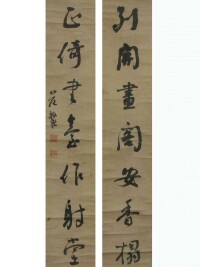 別開畫閣安香榻
正倚書倉作射堂